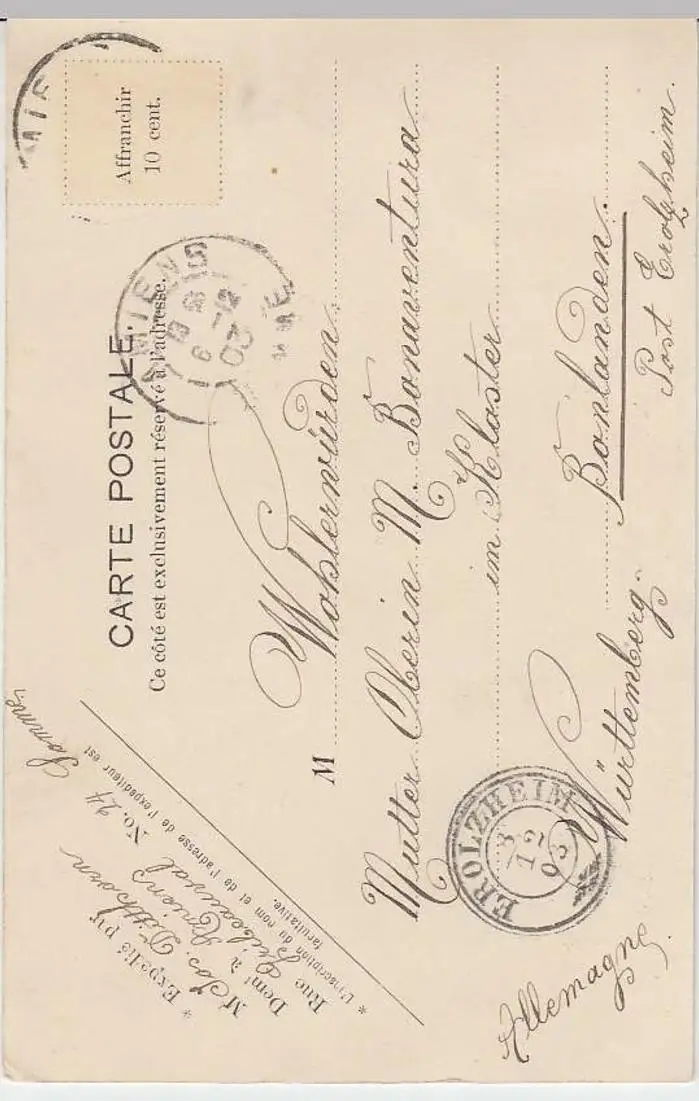 CARTE POSTALE.
Ce côté est exclusivement réservé à l'adresse.
Affranchir
10 cent.
AMIENS
03
* Expédié par
M Jos. Ditthorn
Dem^t à Amiens
Rue No. 24
Somme
* L'inscription du nom et de l'adresse de l'expéditeur est
facultative.
M Wohlerwürden
Mutter Oberin M. Bonaventura
im Kloster
Bonlanden.
Post Erolzheim
Württemberg.
Allemagne
EROLZHEIM
8
12
03